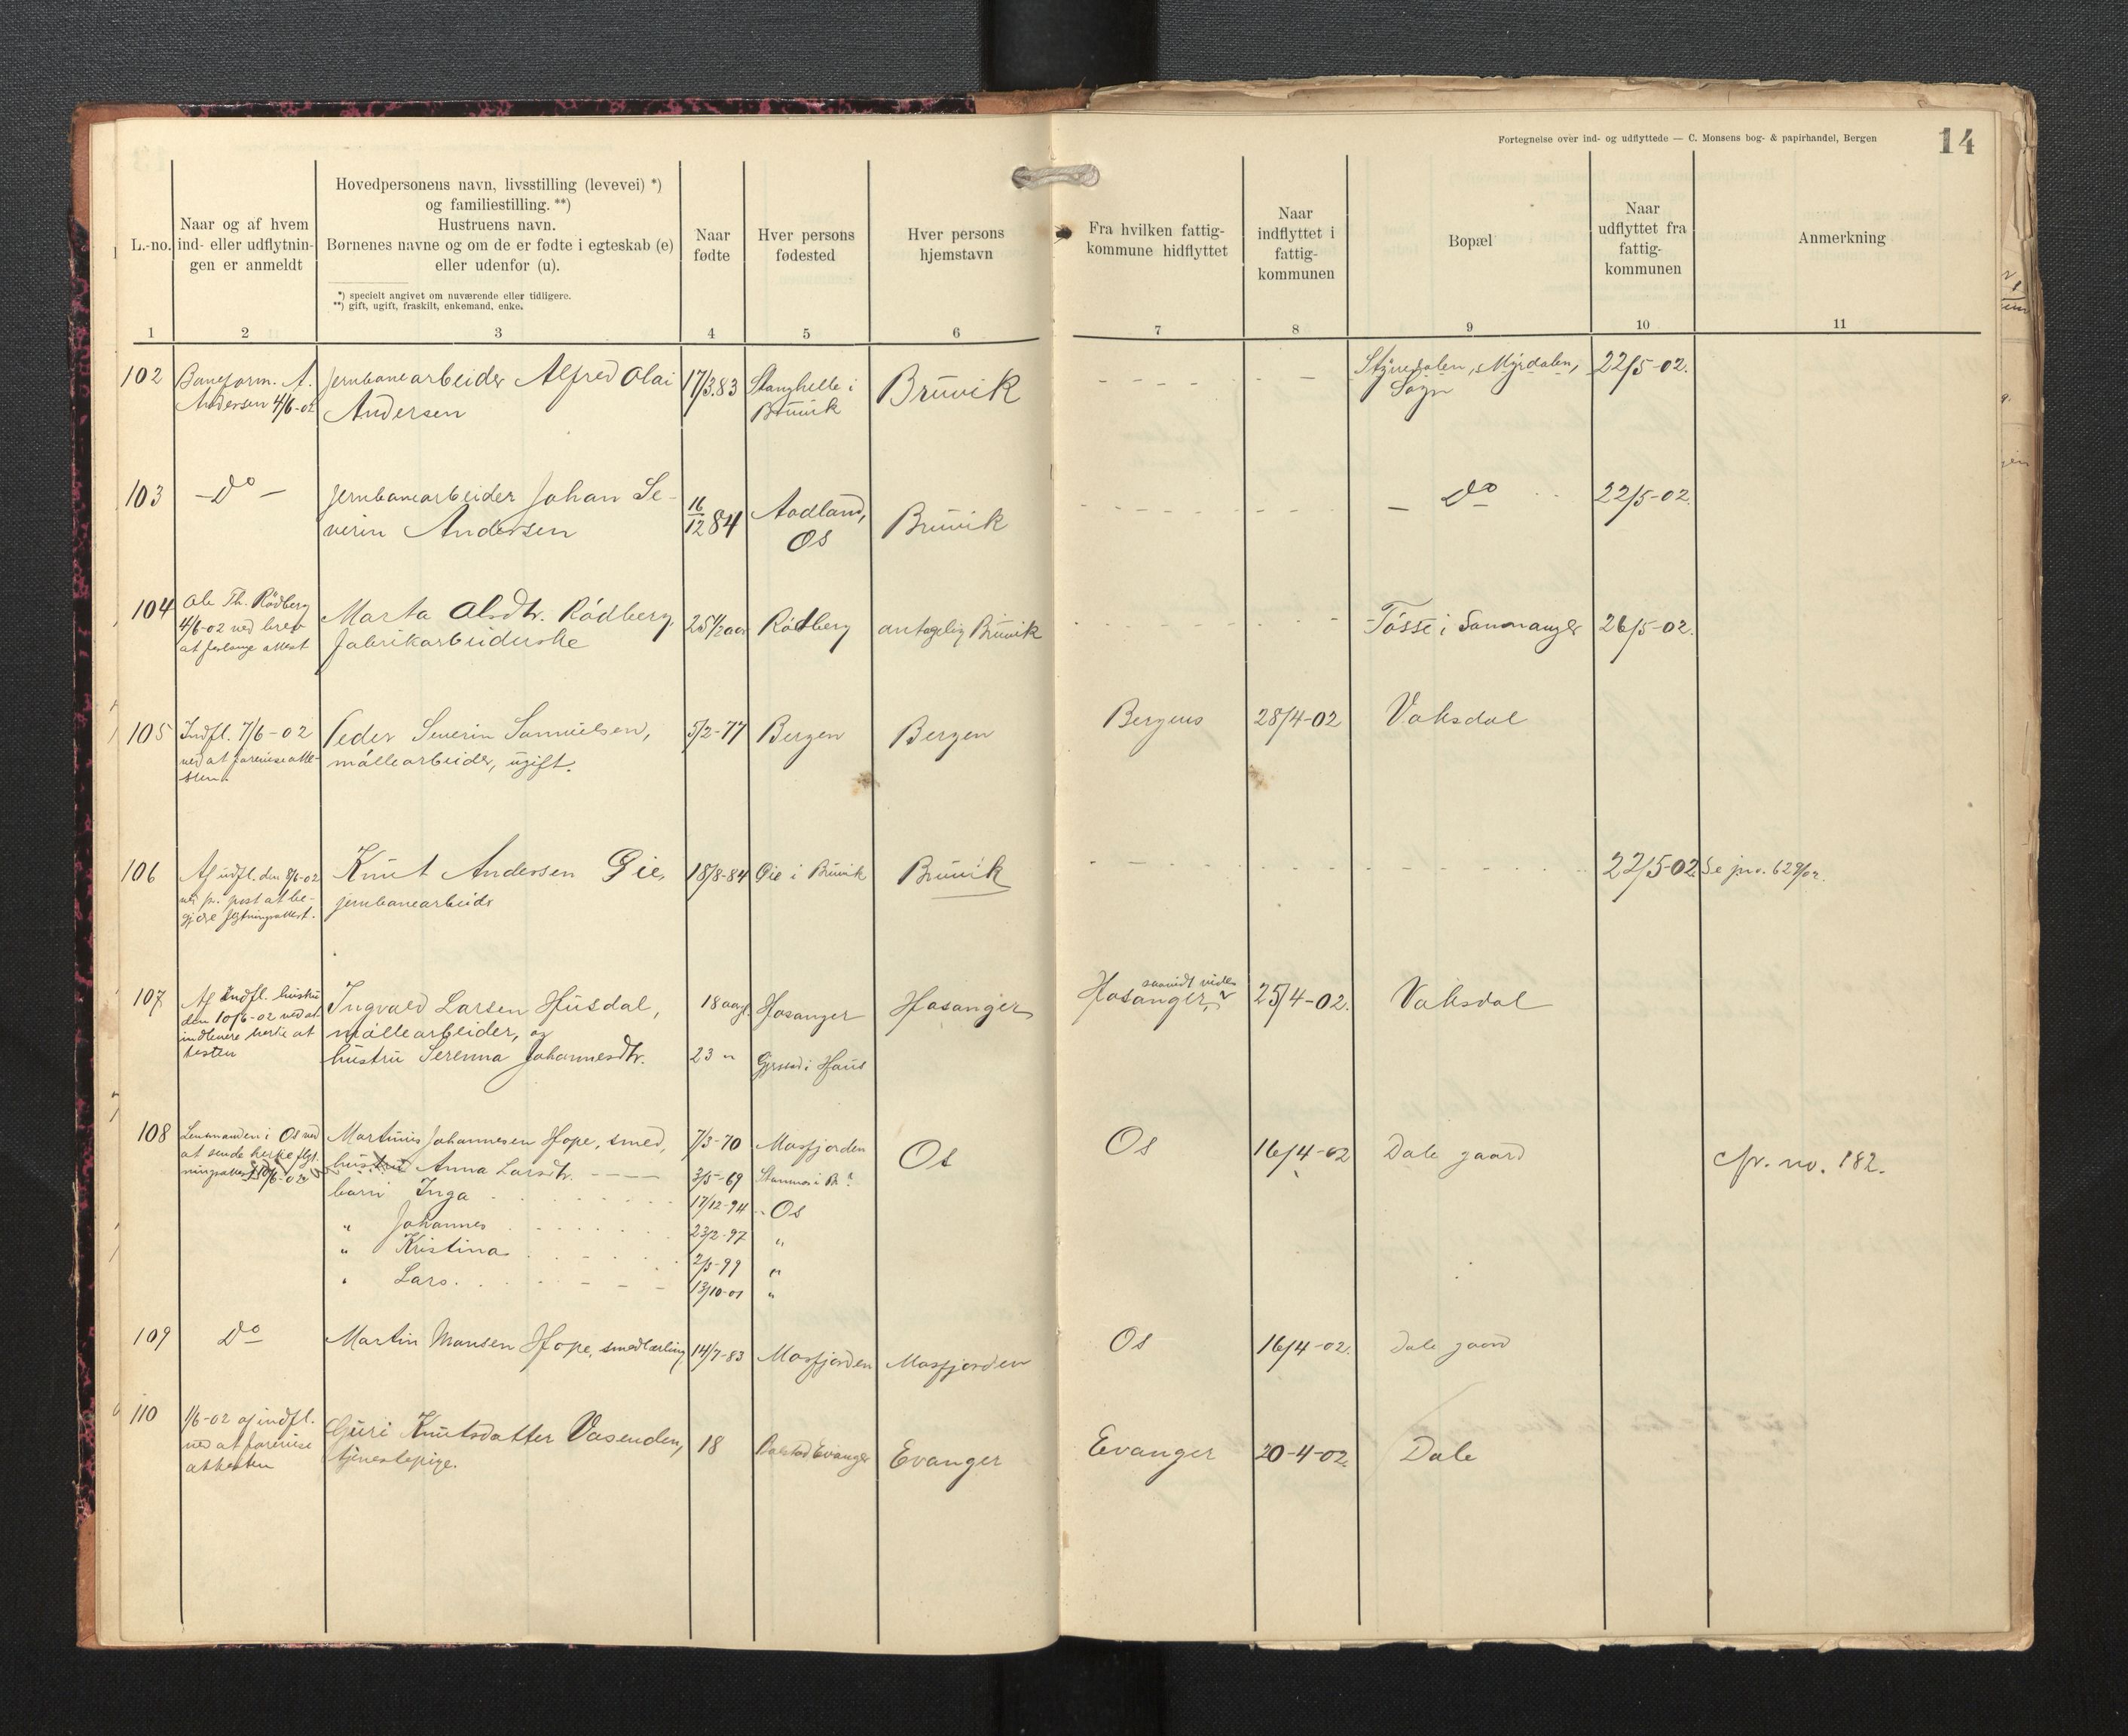 Fortegnelse over ind- og udflyttede — C. Monsens bog- & papirhandel, Bergen
14
L.-no.
Naar og af hvem
ind- eller udflytnin-
gen er anmeldt
Hovedpersonens navn, livsstilling (levevei) *)
og familiestilling. **)
Hustruens navn.
Børnenes navne og om de er fødte i egteskab (e)
eller udenfor (u).
*) specielt angivet om nuværende eller tidligere.
**) gift, ugift, fraskilt, enkemand, enke.
Naar
fødte
Hver persons
fødested
Hver persons
hjemstavn
Fra hvilken fattig-
kommune hidflyttet
Naar
indflyttet i
fattig-
kommunen
Bopæl
Naar
udflyttet fra
fattig-
kommunen
Anmerkning
1 2 3 4 5 6 7 8 9 10 11
102
Baneform. A.
Andersen 4/6-02
Jernbanearbeider Alfred Olai
Andersen
17/3.83
Stanghelle i
Bruvik
Bruvik
Myrdalen,
Sogn
22/5-02.
103
Do
Jernbanearbeider Johan Se-
verin Andersen
16/12 84
Aadland,
Os
Bruvik
Do
22/5-02.
104
Ole Th. Rödberg
4/6-02 ved brev
at forlange attest
Marta Olsdtr. Rödberg,
fabrikarbeiderske
25 1/2 aar
Rödberg
antagelig Bruvik
Tösse i Samnanger
26/5-02.
105
Indfl. 7/6-02
ved at forevise atte-
sten
Peder Severin Samuelsen,
möllearbeider, ugift.
5/2-77
Bergen
Bergen
Bergens
28/4-02
Vaksdal
106
Af udfl. den 8/6-02
ved pr. post at be-
gjære flytningsattest.
Knut Andersen Öie,
jernbanearbeid.
18/8-84
Öie i Bruvik
Bruvik
22/5-02.
Se jno. 629/02.
107
Af indfl. hustru
den 10/6-02 ved at
indlevere hertil at
testen
Ingvald Larsen Husdal,
möllearbeider, og
hustru Serenna Johannesdtr.
18
23 "
Hosanger
i Haus
Hosanger
saavidt vides
Hosanger
25/4-02.
Vaksdal
108
Lensmanden i Os ved
at sende herhe flyt-
ningsattest
Martinus Johannesen Hope, smed,
hustru Anna Larsdtr.
barn Inga
" Johannes
" Kristina
" Lars.
7/3-70
3/5-69
17/12-94
23/2-97
2/5-99
13/10-01
Masfjorden
Stamnes i Br?
Os
"
"
"
Os
Os
16/4-02
Dale gaard
cfr. no. 182.
109
Do
Martin Monsen Hope, smedlærling
14/7-83
Masfjorden
Masfjorden
Os
16/4-02.
Dale gaard
110
1/6-02 af indfl.
ved at forevise
attesten
Guri Knutsdatter Vasenden,
tjenestepige.
18
Evanger
Evanger
Evanger
20-4-02.
Dale